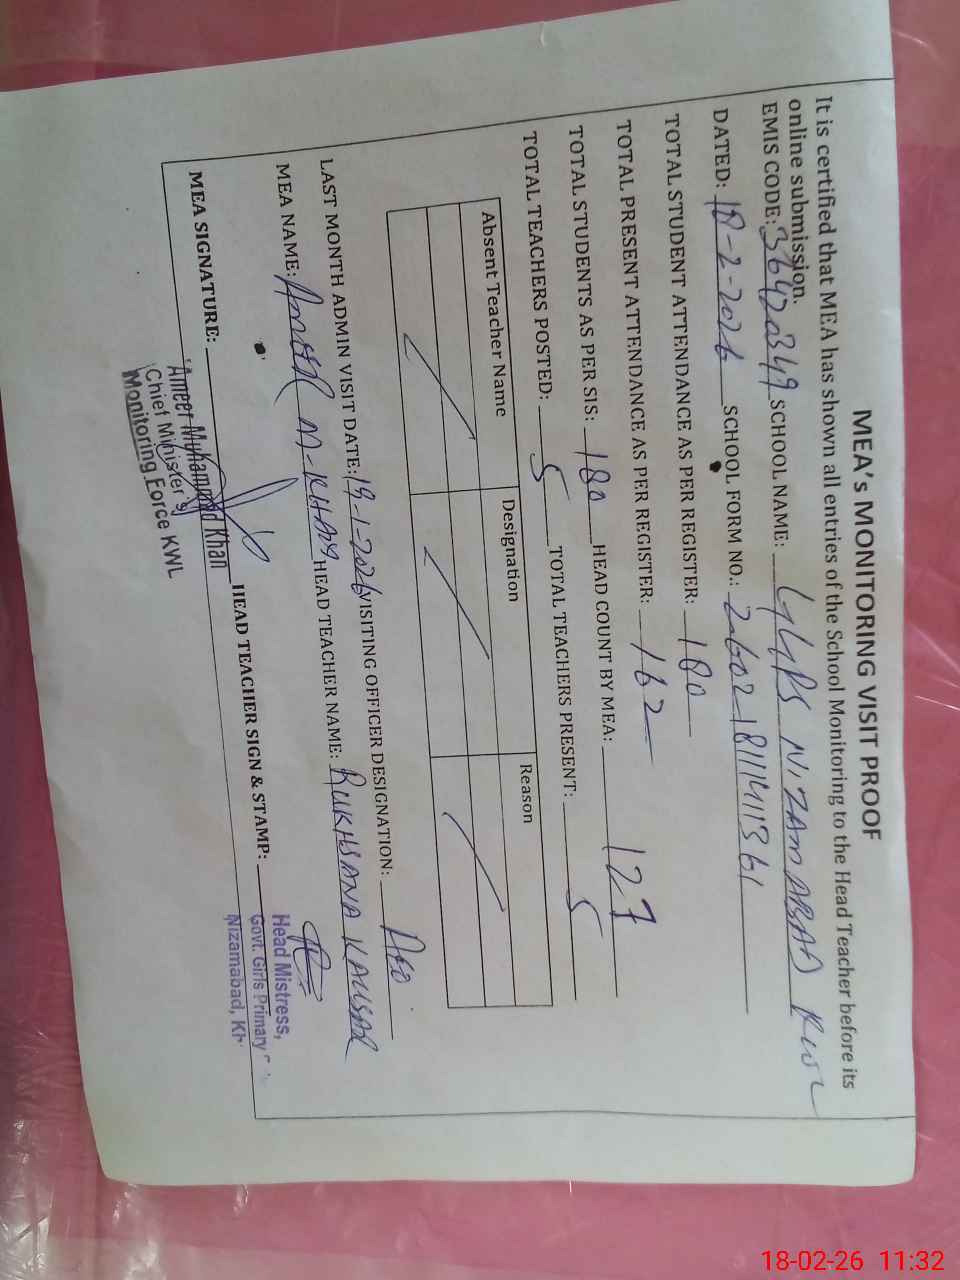 MEA's MONITORING VISIT PROOF
It is certified that MEA has shown all entries of the School Monitoring to the Head Teacher before its
online submission.
EMIS CODE: 36420349 SCHOOL NAME: GGPS NIZAMABAD KWL
DATED: 18-2-2026 SCHOOL FORM NO.: 2602181114111361
TOTAL STUDENT ATTENDANCE AS PER REGISTER: 180
TOTAL PRESENT ATTENDANCE AS PER REGISTER: 162
TOTAL STUDENTS AS PER SIS: 180 HEAD COUNT BY MEA: 127
TOTAL TEACHERS POSTED: 5 TOTAL TEACHERS PRESENT: 5
Absent Teacher Name Designation Reason
LAST MONTH ADMIN VISIT DATE: 19-1-2026 VISITING OFFICER DESIGNATION: AEO
MEA NAME: Ameer M-KHAN HEAD TEACHER NAME: RUKHSANA KAUSAR
MEA SIGNATURE: HEAD TEACHER SIGN & STAMP:
Ameer Muhammad Khan
Chief Minister's
Monitoring Force KWL
Head Mistress,
Govt. Girls Primary
Nizamabad,
18-02-26 11:32